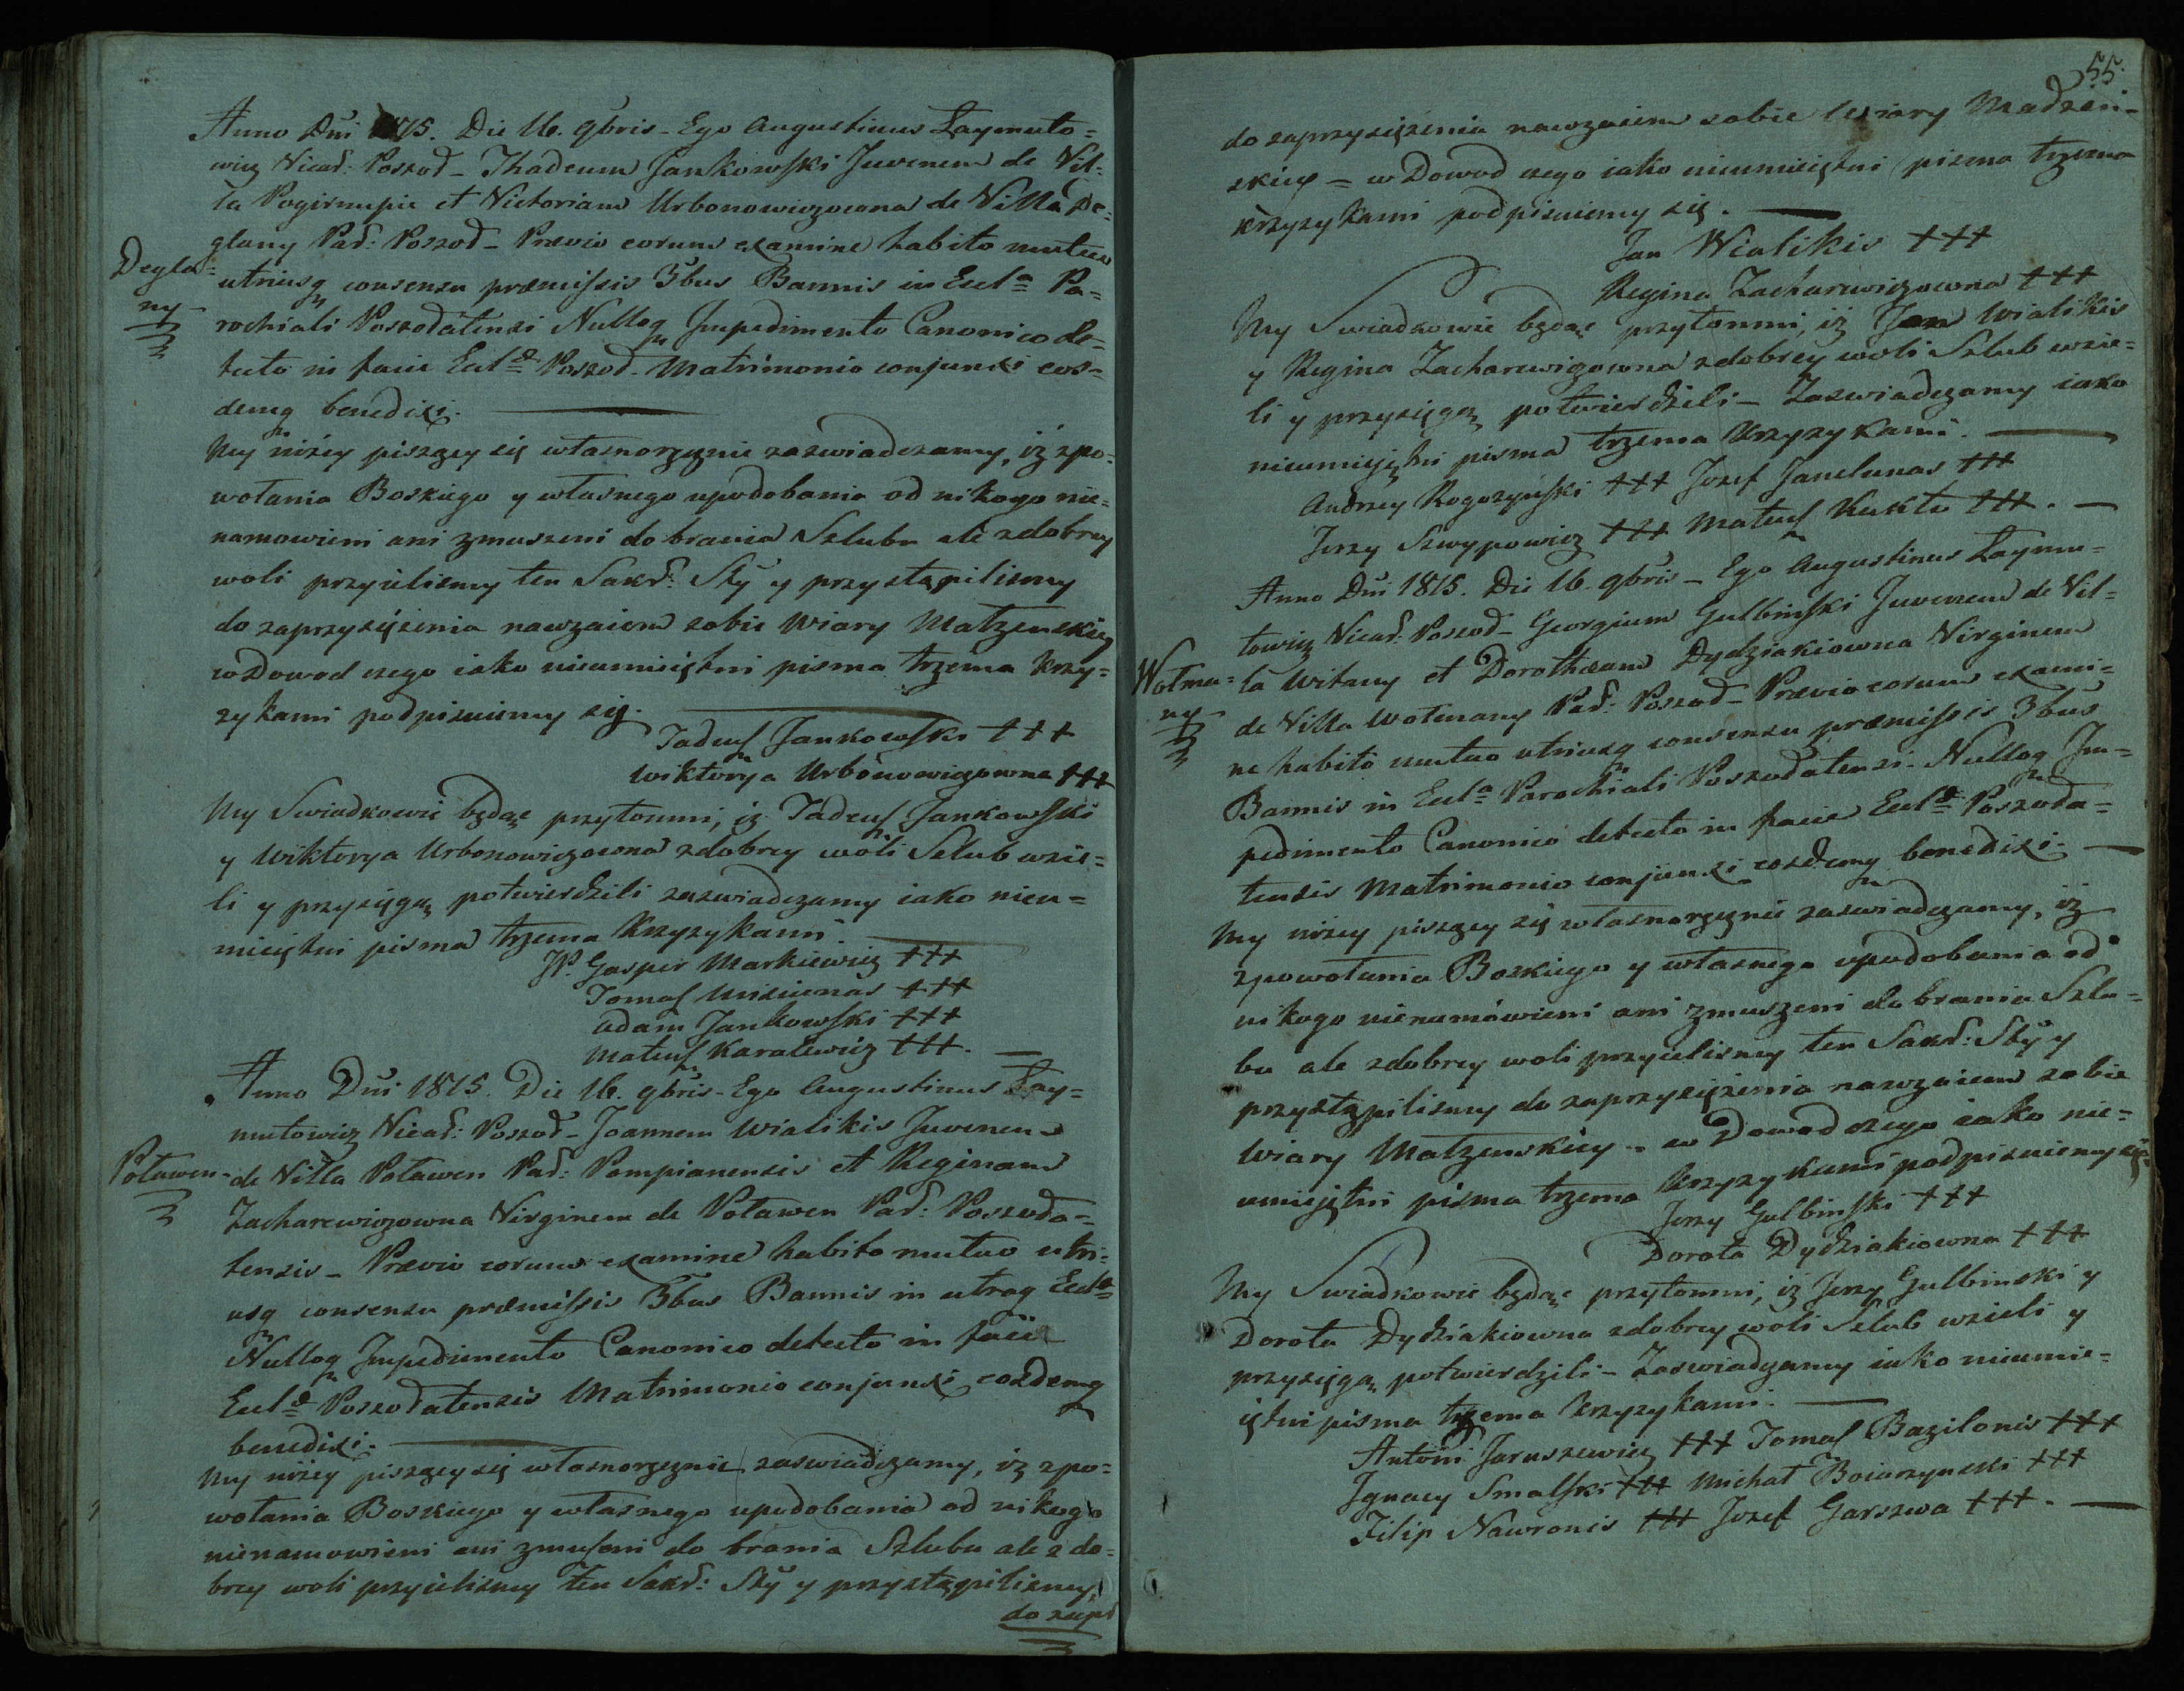 Anno Dni 1815. Die 16. 9bris - Ego Augustinus Laymuto=
wicz Vicar: Poszod - Thadeum Jankowski Juvenem de Vil=
la Pogirnupie et Victoriam Urbonowiczowna de Villa De=
glany Par: Poszod - Prævio eorum examine habito mutuo
Degla=
ny
utriusq consensu præmissis 3bus Bannis in Eccla Pa=
rochiali Poszodatensi Nulloq Impedimento Canonico de=
tecto in facie Eccle Poszod. Matrimonio conjunxi eos=
demq benedixi.
My niżey piszący się własnoręcznie zaswiadczamy, iż zpo=
wołania Boskiego y własnego upodobania od nikogo nie=
namowieni ani zmuszeni do brania Szlubu ale zdobrey
woli przyieliśmy ten Sakr: Sty y przystąpiliśmy
do zaprzysiężenia nawzaiem sobie Wiary Małzenskiey
wDowod czego iako nieumieiętni pisma trzema krzy=
zykami podpisuiemy się.
Tadeusz Jankowski +++
Wiktorya Urbonowiczowna +++
My Swiadkowie będąc przytomni, iż Tadeusz Jankowski
y Wiktorya Urbonowiczowna zdobrey woli Szlub wzie=
li y przysięgą potwierdzili zaswiadczamy iako nieu=
mieiętni pisma trzema Krzyzykami.
JP. Gasper Markiewicz +++
Tomasz Misiunas +++
Adam Jankowski +++
Mateusz Karalewicz +++.
Anno Dni 1815. Die 16. 9bris - Ego Augustinus Lay=
mutowicz Vicar: Poszod - Joannem Wialikis Juvenem
Poławen
de Villa Poławen Par: Pompianensis et Reginam
Zacharewiczowna Virginem de Poławen Par: Poszoda=
tensis - Prævio eorum examine habito mutuo utri=
usq consensu præmissis 3bus Bannis in utraq Eccla
Nulloq Impedimento Canonico detecto in facie
Eccle Poszodatensis Matrimonio conjunxi eosdemq
benedixi.
My niżey piszący się własnoręcznie zaswiadczamy, iż zpo=
wołania Boskiego y własnego upodobania od nikogo
nienamowieni ani zmuszeni do brania Szlubu ale z do=
brey woli przyieliśmy ten Sakr: Sty y przystąpiliśmy
do zaprz
55.
do zaprzysiężenia nawzaiem sobie Wiary Madzeń=
skiey = w Dowod czego iako nieumieiętni pisma trzema
krzyzykami podpisuiemy się.
Jan Wialikis +++
Regina Zacharewiczowna +++
My Swiadkowie będąc przytomni, iż Jan Wialikis
y Regina Zacharewiczowna zdobrey woli Szlub wzie=
li y przysięgą potwierdzili - Zaswiadczamy iako
nieumieiętni pisma trzema Krzyzykami.
Andrzey Rogozynski +++ Jozef Janelunas +++
Jerzy Szwypowicz +++ Mateusz Kukta +++.
Anno Dni 1815. Die 16. 9bris - Ego Augustinus Laymu=
towicz Vicar: Poszod - Georgium Gulbinski Juvenem de Vil=
Wolma=
ny
la Witany et Dorotheam Dydziakiowna Virginem
de Villa Wolmany Par: Poszod - Prævio eorum exami=
ne habito mutuo utriusq consensu præmissis 3bus
Bannis in Eccla Parochiali Poszodatensi - Nulloq Im=
pedimento Canonico detecto in facie Eccle Poszoda=
tensis Matrimonio conjunxi eosdemq benedixi.
My niżey piszący się własnoręcznie zaswiadczamy, iż
zpowołania Boskiego y własnego upodobania od
nikogo nienamówieni ani zmuszeni do brania Szlu=
bu ale zdobrey woli przyieliśmy ten Sakr: Sty y
przystąpiliśmy do zaprzysiężenia nawzaiem sobie
Wiary Małzenskiey - w Dowod czego iako nie=
umieiętni pisma trzema Krzyzykami podpisuiemy się.
Jerzy Gulbinski +++
Dorota Dydziakiowna +++
My Swiadkowie będąc przytomni, iż Jerzy Gulbinski y
Dorota Dydziakiowna zdobrey woli Szlub wzieli y
przysięgą potwierdzili - Zaswiadczamy iako nieumie=
iętni pisma trzema Krzyzykami.
Antoni Jaruszewicz +++ Tomasz Bazilonis +++
Ignacy Smalski +++ Michał Boiarzynski +++
Filip Nawronis +++ Jozef Garszwa +++.